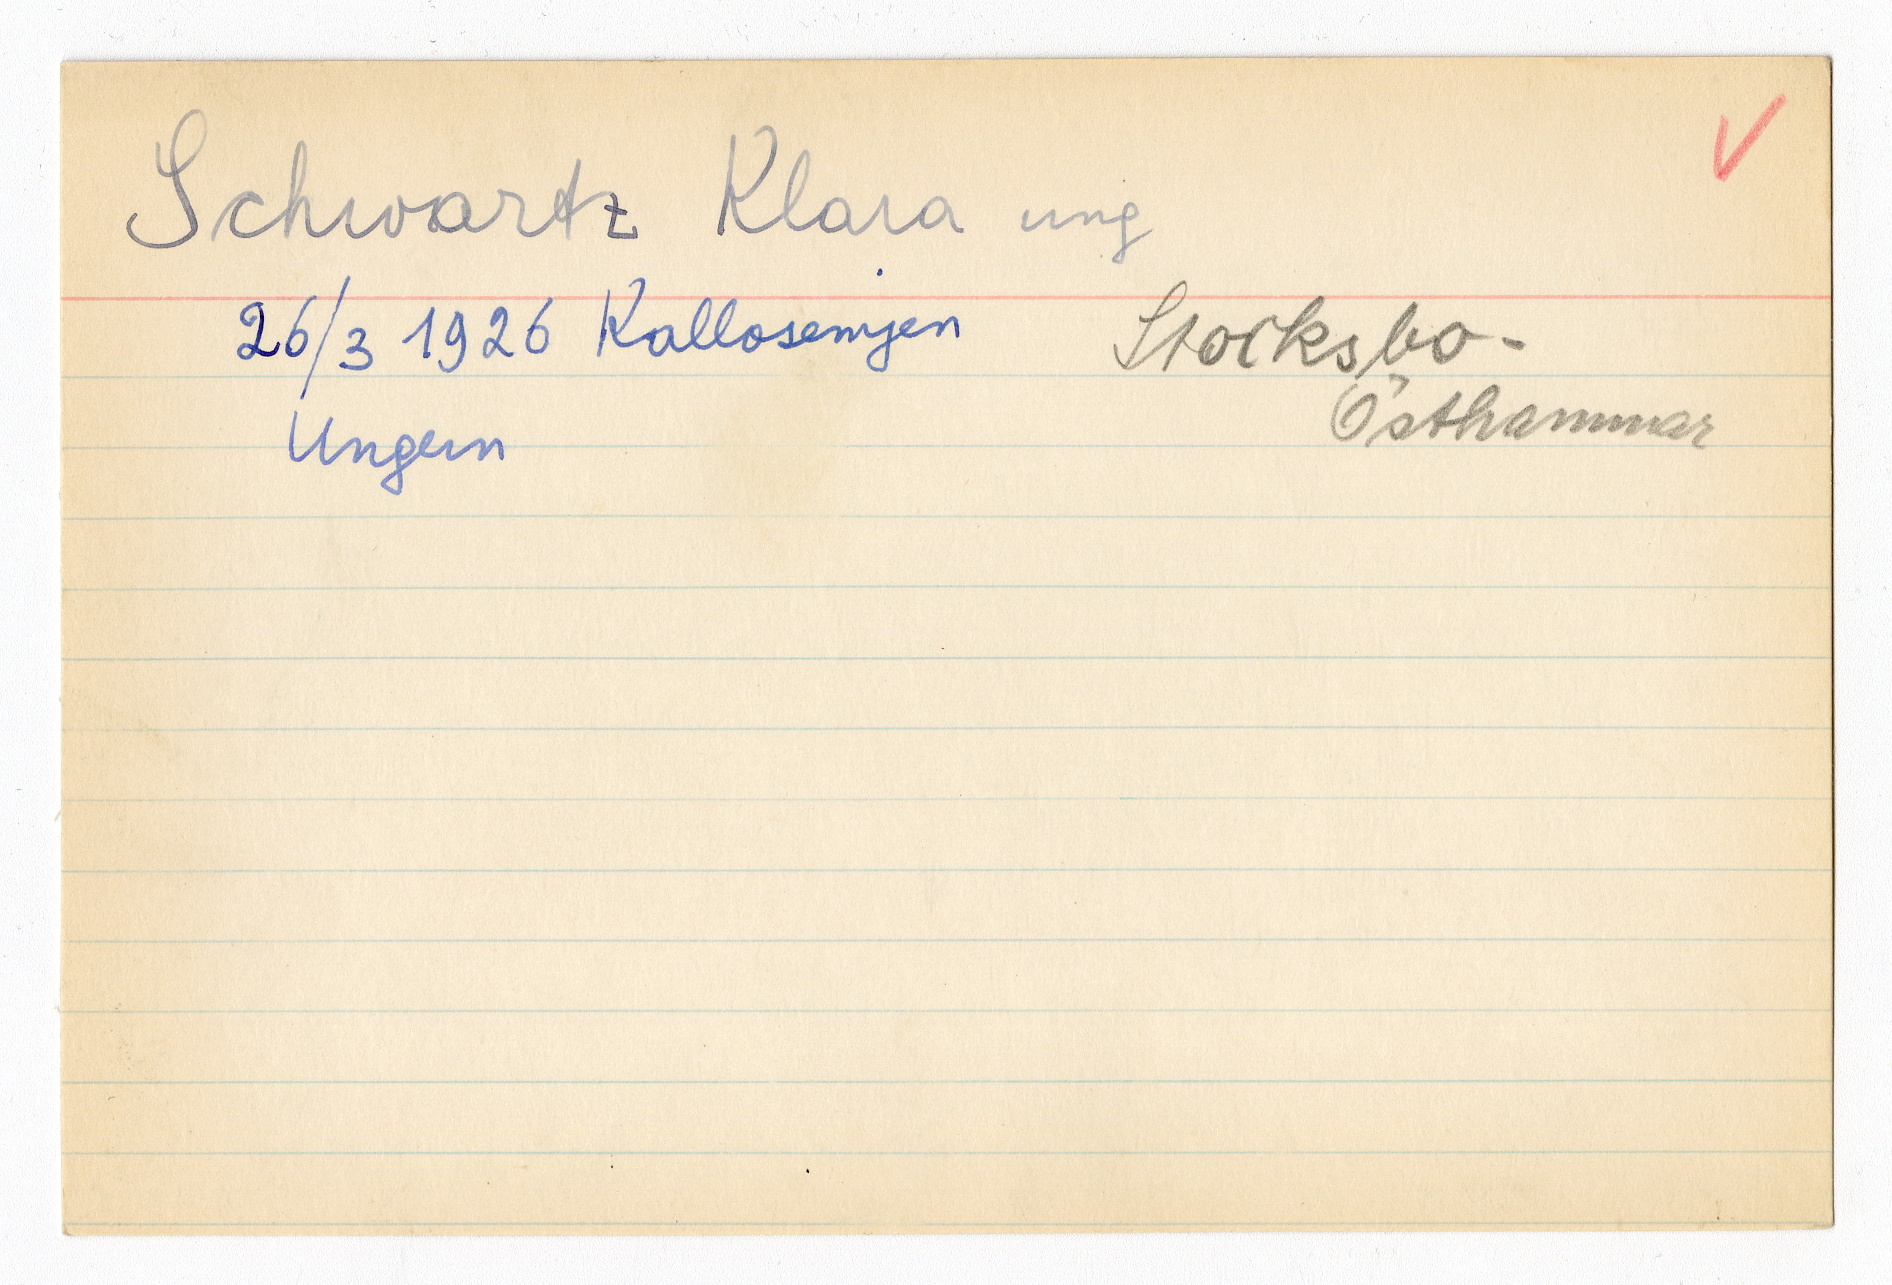 Schwartz Klara ung
26/3 1926 Kallosemjen
Ungern
Stocksbo-
Östhammar